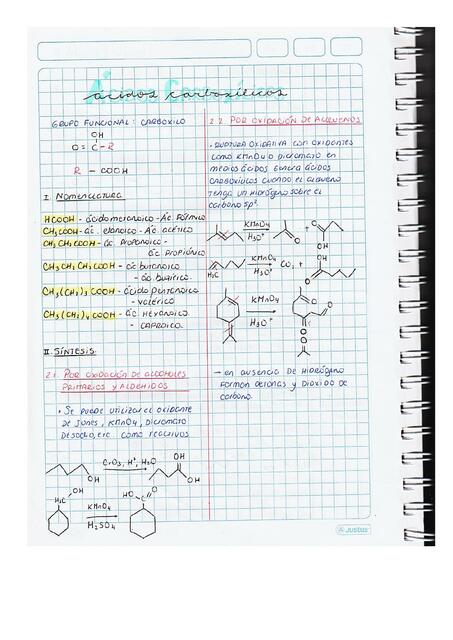 Ácidos Carboxílicos
ácidos carboxílicos
GRUPO FUNCIONAL: CARBOXILO
OH
O = C - R
R - COOH
I. Nomenclatura
HCOOH - ácido metanoico - Ác. Fórmico
CH3COOH - ác. etanoico - Ác. acético
CH3CH2COOH - ác. propanoico -
ác. propiónico
CH3CH2CH2COOH - ác. butanoico
- ác. butírico.
CH3(CH2)3COOH - ácido pentanoico
- valérico
CH3(CH2)4COOH - ác. Hexanoico
- caproico.
II. SÍNTESIS.
2.1. POR OXIDACIÓN DE ALCOHOLES
PRIMARIOS Y ALDEHIDOS
• Se puede utilizar el oxidante
de Jones, KMnO4, dicromato
de sodio, etc como reactivos
CrO3, H+, H2O
OH
O
OH
H2C OH
KMnO4
H2SO4
HO C O
2.2. POR OXIDACIÓN DE ALQUENOS
• RUPTURA OXIDATIVA con oxidantes
como KMnO4 o dicromato en
medios ácidos genera ácidos
carboxílicos cuando el alqueno
tenga un hidrógeno sobre el
carbono sp2.
KMnO4
H3O+
O
+
O
OH
H2C
KMnO4
H3O+
CO2 +
O
OH
KMnO4
H3O+
O
O
O
→ en ausencia de hidrógeno
forman cetonas y dióxido de
carbono.
Justus